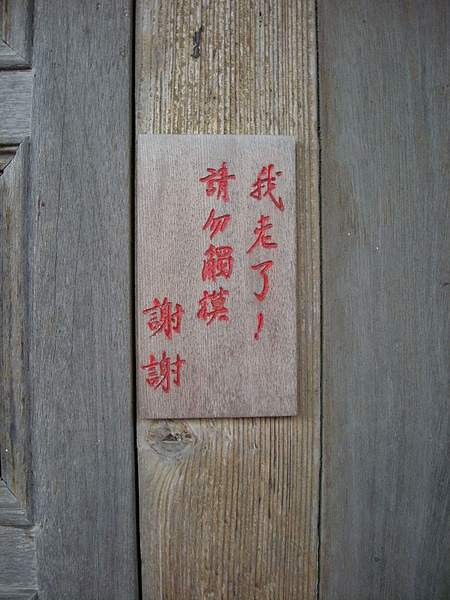 我老了！
請勿觸摸
謝謝